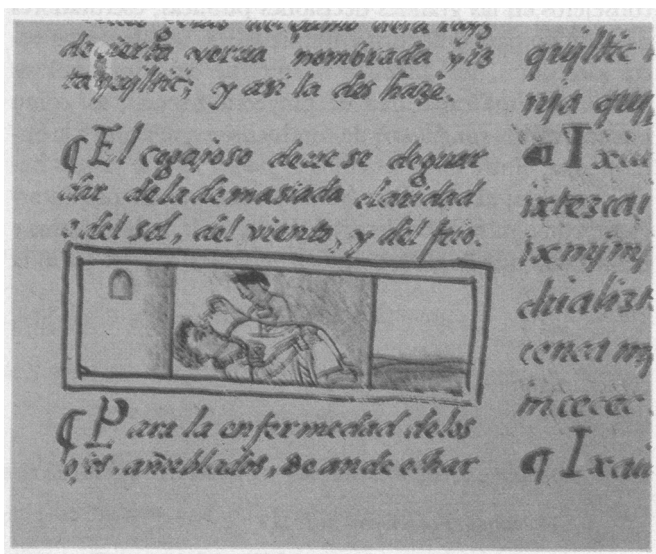 de cierta yerua nombrada yiz
taquiltic, y asi la des haze.
¶ El cegajoso deue se deguar
dar dela demasiada claridad
del sol, del viento, y del frio.
¶ Para la enfermedad delos
ojos, añeblados, se an de echar
quijltic
nja
¶ Ixin
ixtezcai
ixmjmj
chializt
cenca
in cecec
¶ Ixai